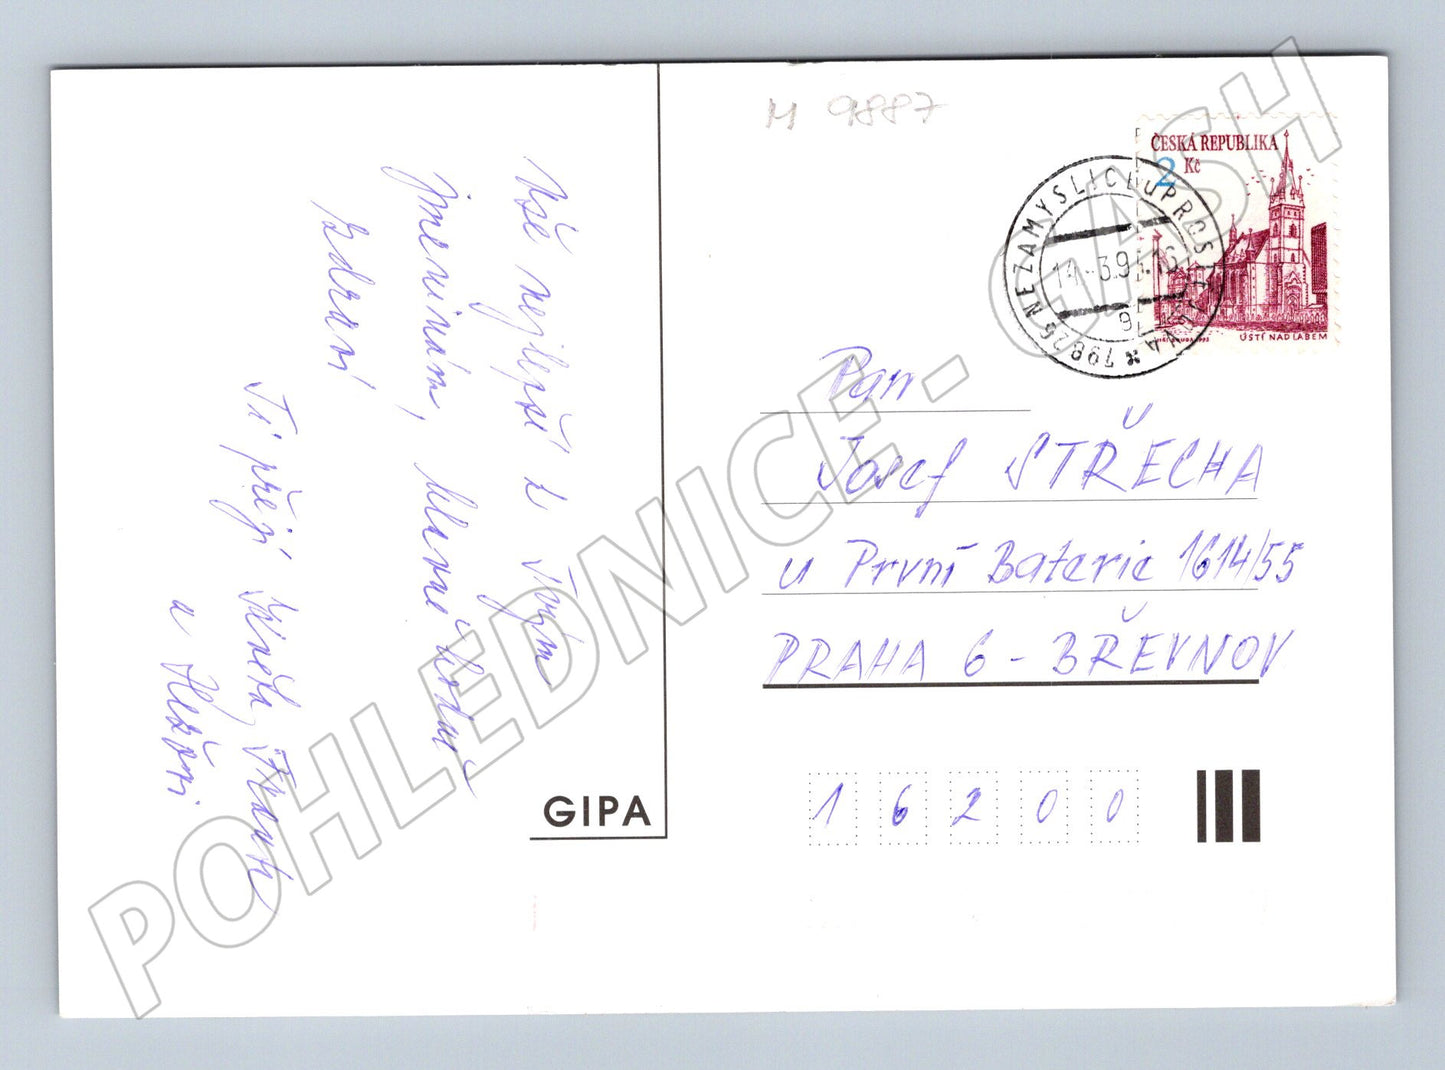 M 9887
ČESKÁ REPUBLIKA
2 Kč
ÚSTÍ NAD LABEM
79826 NEZAMYSLICE u PROSTĚJOVA
Vše nejlepší k Tvým
jmeninám, hlavně hodně
zdraví
Ti přejí
a
Pan
Josef STŘECHA
u První Baterie 1614/55
PRAHA 6 - BŘEVNOV
16200
GIPA
POHLEDNICE - CASH